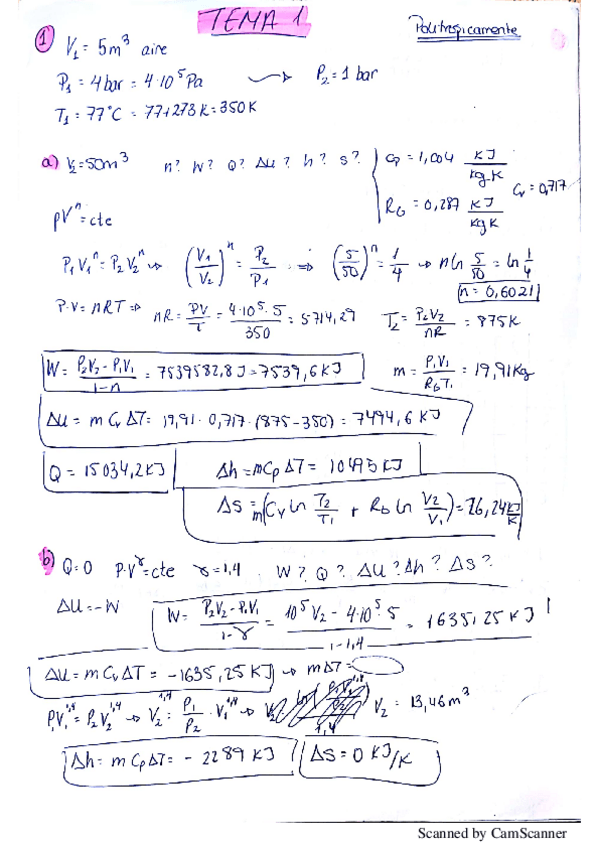 TEMA 1
Politropicamente
1 V₁ = 5m³ aire
P₁ = 4 bar = 4·10⁵ Pa → P₂ = 1 bar
T₁ = 77°C = 77+273 K = 350 K
a) V₂ = 50m³ n? W? Q? ΔU? h? s? Cp = 1,004 KJ/kg·K
Cv = 0,717
RG = 0,287 KJ/KgK
pVⁿ = cte
P₁V₁ⁿ = P₂V₂ⁿ → (V₁/V₂)ⁿ = P₂/P₁ ⇒ (5/50)ⁿ = 1/4 → n ln 5/50 = ln 1/4
n = 0,6021
P·V = nRT ⇒ nR = PV/T = 4·10⁵·5/350 = 5714,29 T₂ = P₂V₂/nR = 875K
W = P₂V₂ - P₁V₁/1-n = 7539582,8 J = 7539,6 KJ m = P₁V₁/RGT₁ = 19,91 Kg
ΔU = m Cv ΔT = 19,91 · 0,717 · (875-350) = 7494,6 KJ
Q = 15034,2 KJ Δh = mCp ΔT = 10495 KJ
ΔS = m(Cv ln T₂/T₁ + RG ln V₂/V₁) = 26,24 KJ/K
b) Q = 0 P·V^γ = cte γ = 1,4 W? Q? ΔU? Δh? ΔS?
ΔU = -W W = P₂V₂ - P₁V₁/1-γ = 10⁵V₂ - 4·10⁵·5/1-1,4 = 1635,25 KJ
ΔU = m Cv ΔT = -1635,25 KJ → mΔT =
P₁V₁^1,4 = P₂V₂^1,4 → V₂^1,4 = P₁/P₂ · V₁^1,4 → V₂ = 13,46 m³
Δh = m Cp ΔT = - 2289 KJ ΔS = 0 KJ/K
Scanned by CamScanner